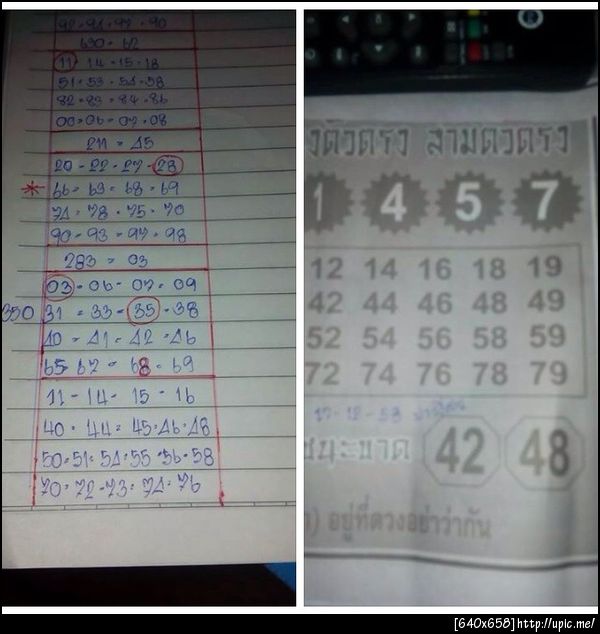 92 - 94 - 97 - 90
630 = 62
11 14 - 15 - 18
51 - 53 - 54 - 58
82 - 83 = 84 - 86
00 = 06 = 07 = 08
211 = 45
20 - 22 - 27 - 28
* 66 = 63 = 68 = 69
74 = 78 = 75 = 70
90 - 93 = 97 = 98
283 = 03
03 = 06 - 07 = 09
350 31 = 33 = 35 - 38
40 = 41 = 42 = 46
65 - 67 = 68 = 69
11 - 14 - 15 - 16
40 = 44 = 45 = 46 - 48
50 = 51 = 54 = 55 = 56 = 58
70 = 72 - 73 = 74 = 76
งตัวตรง สามตัวตรง
1 4 5 7
12 14 16 18 19
42 44 46 48 49
52 54 56 58 59
72 74 76 78 79
17 - 12 - 53
ชนะขาด 42 48
) อยู่ที่ดวงอย่าว่ากัน
[640x658]http://upic.me/